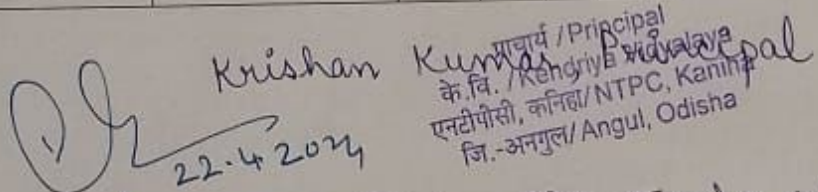 Krishan Kumar, Principal
प्राचार्य / Principal
के.वि. / Kendriya Vidyalaya
एनटीपीसी, कनिहा/ NTPC, Kaniha
जि.-अनगुल/ Angul, Odisha
22.4.2024